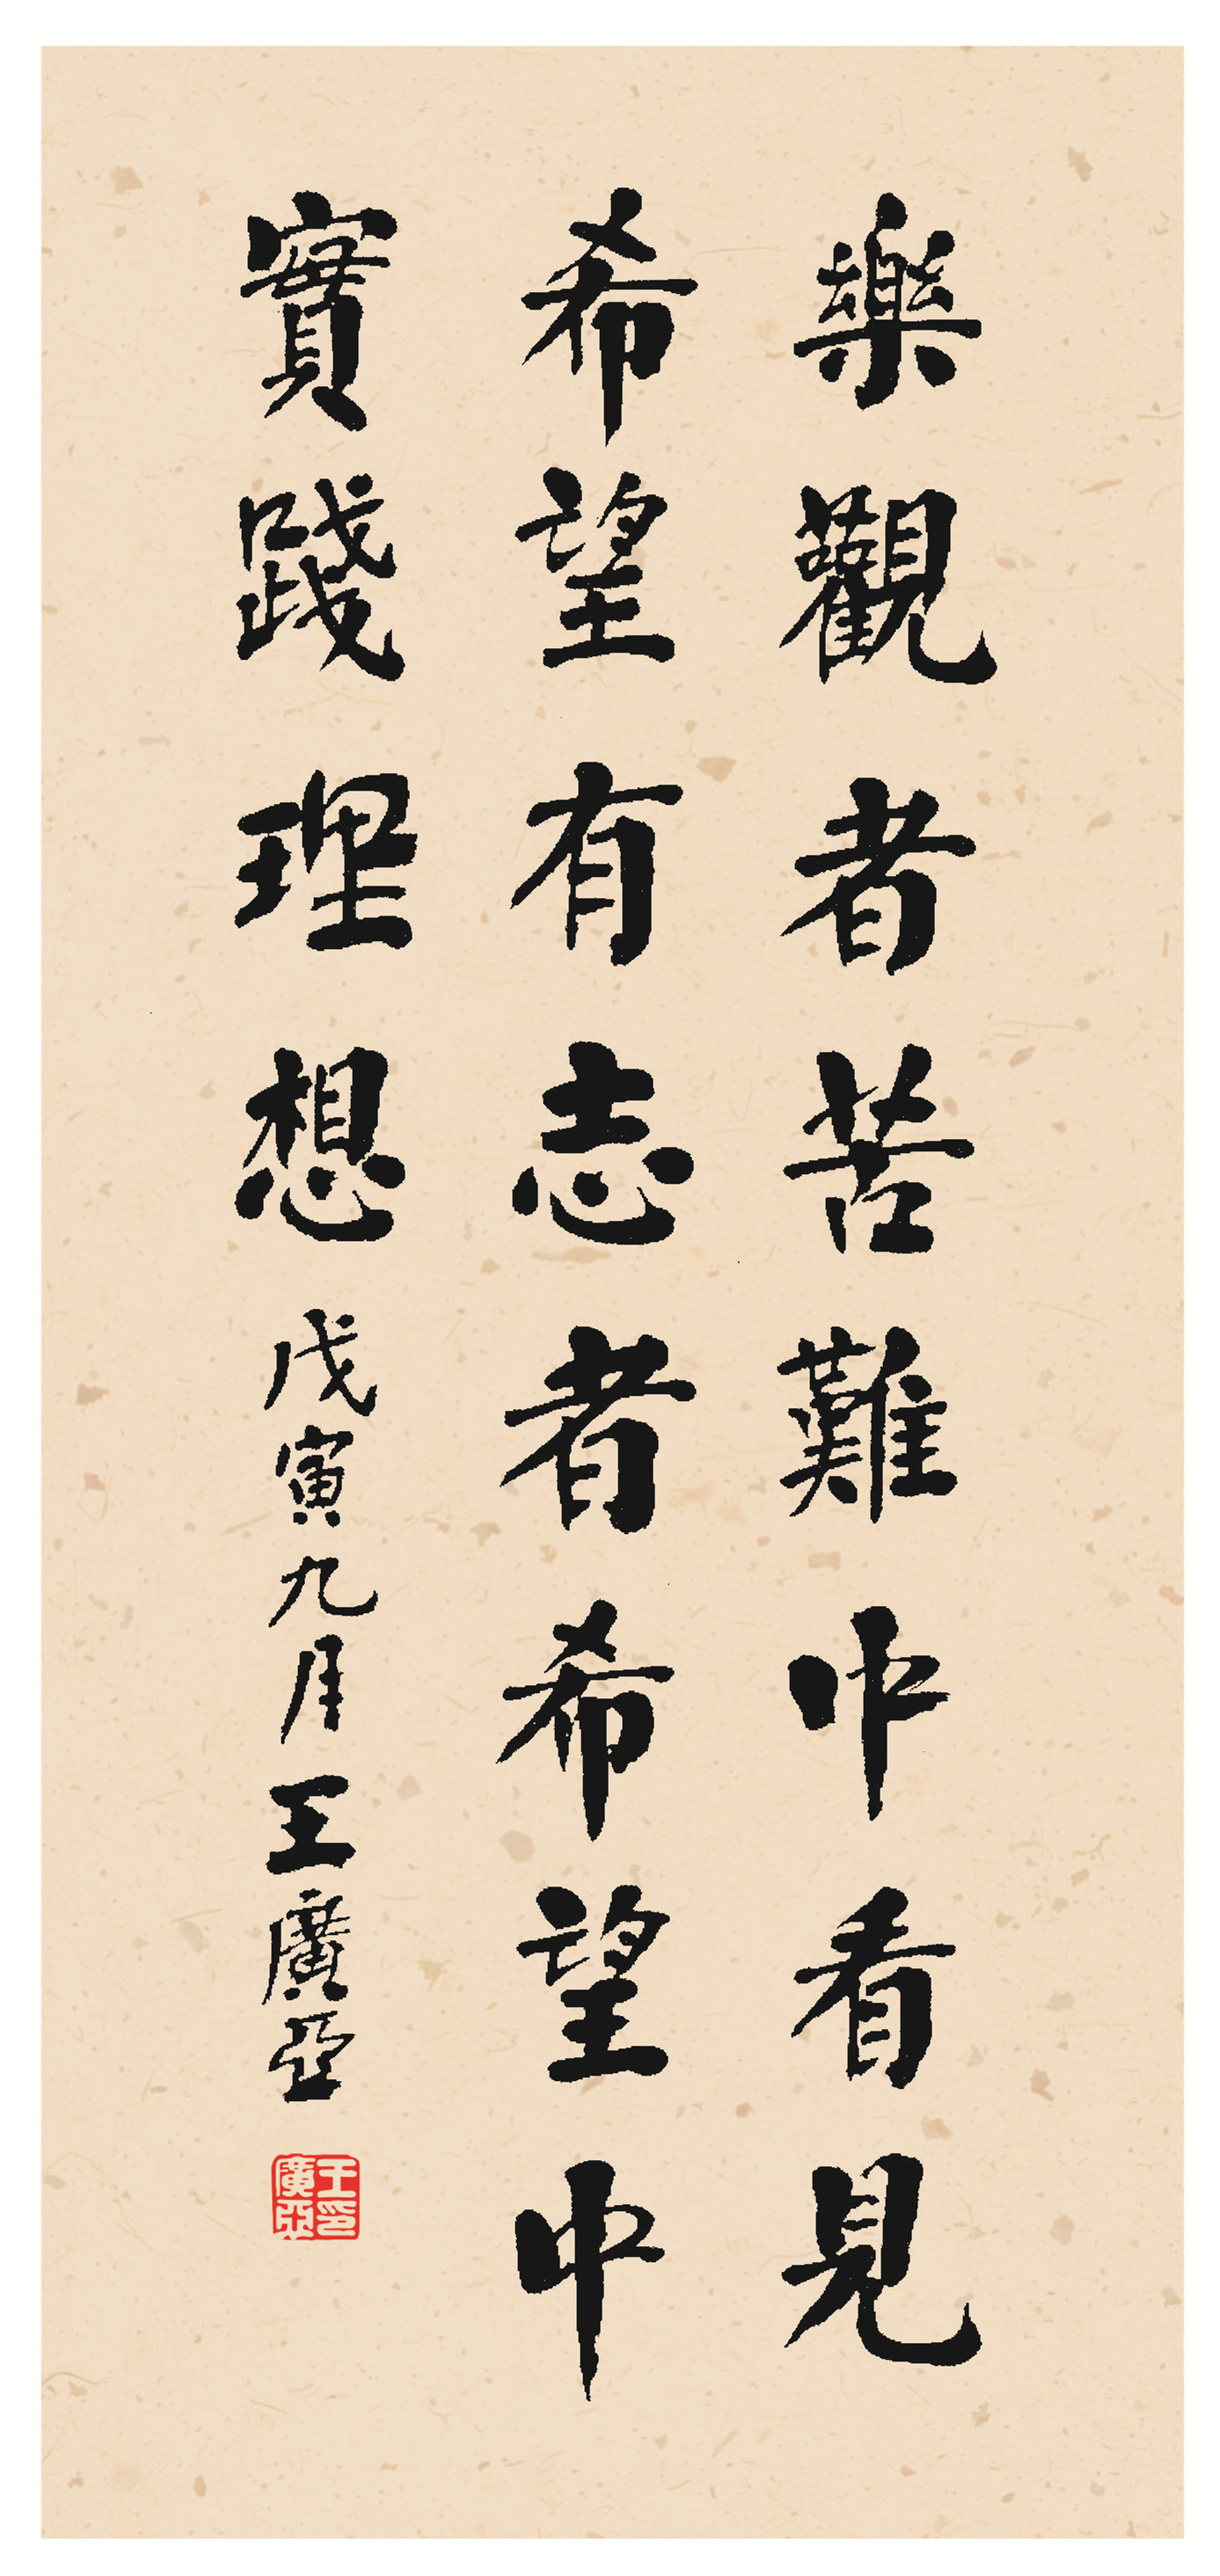 樂觀者苦難中看見
希望有志者希望中
實踐理想戊寅九月王廣亞
王印廣亞